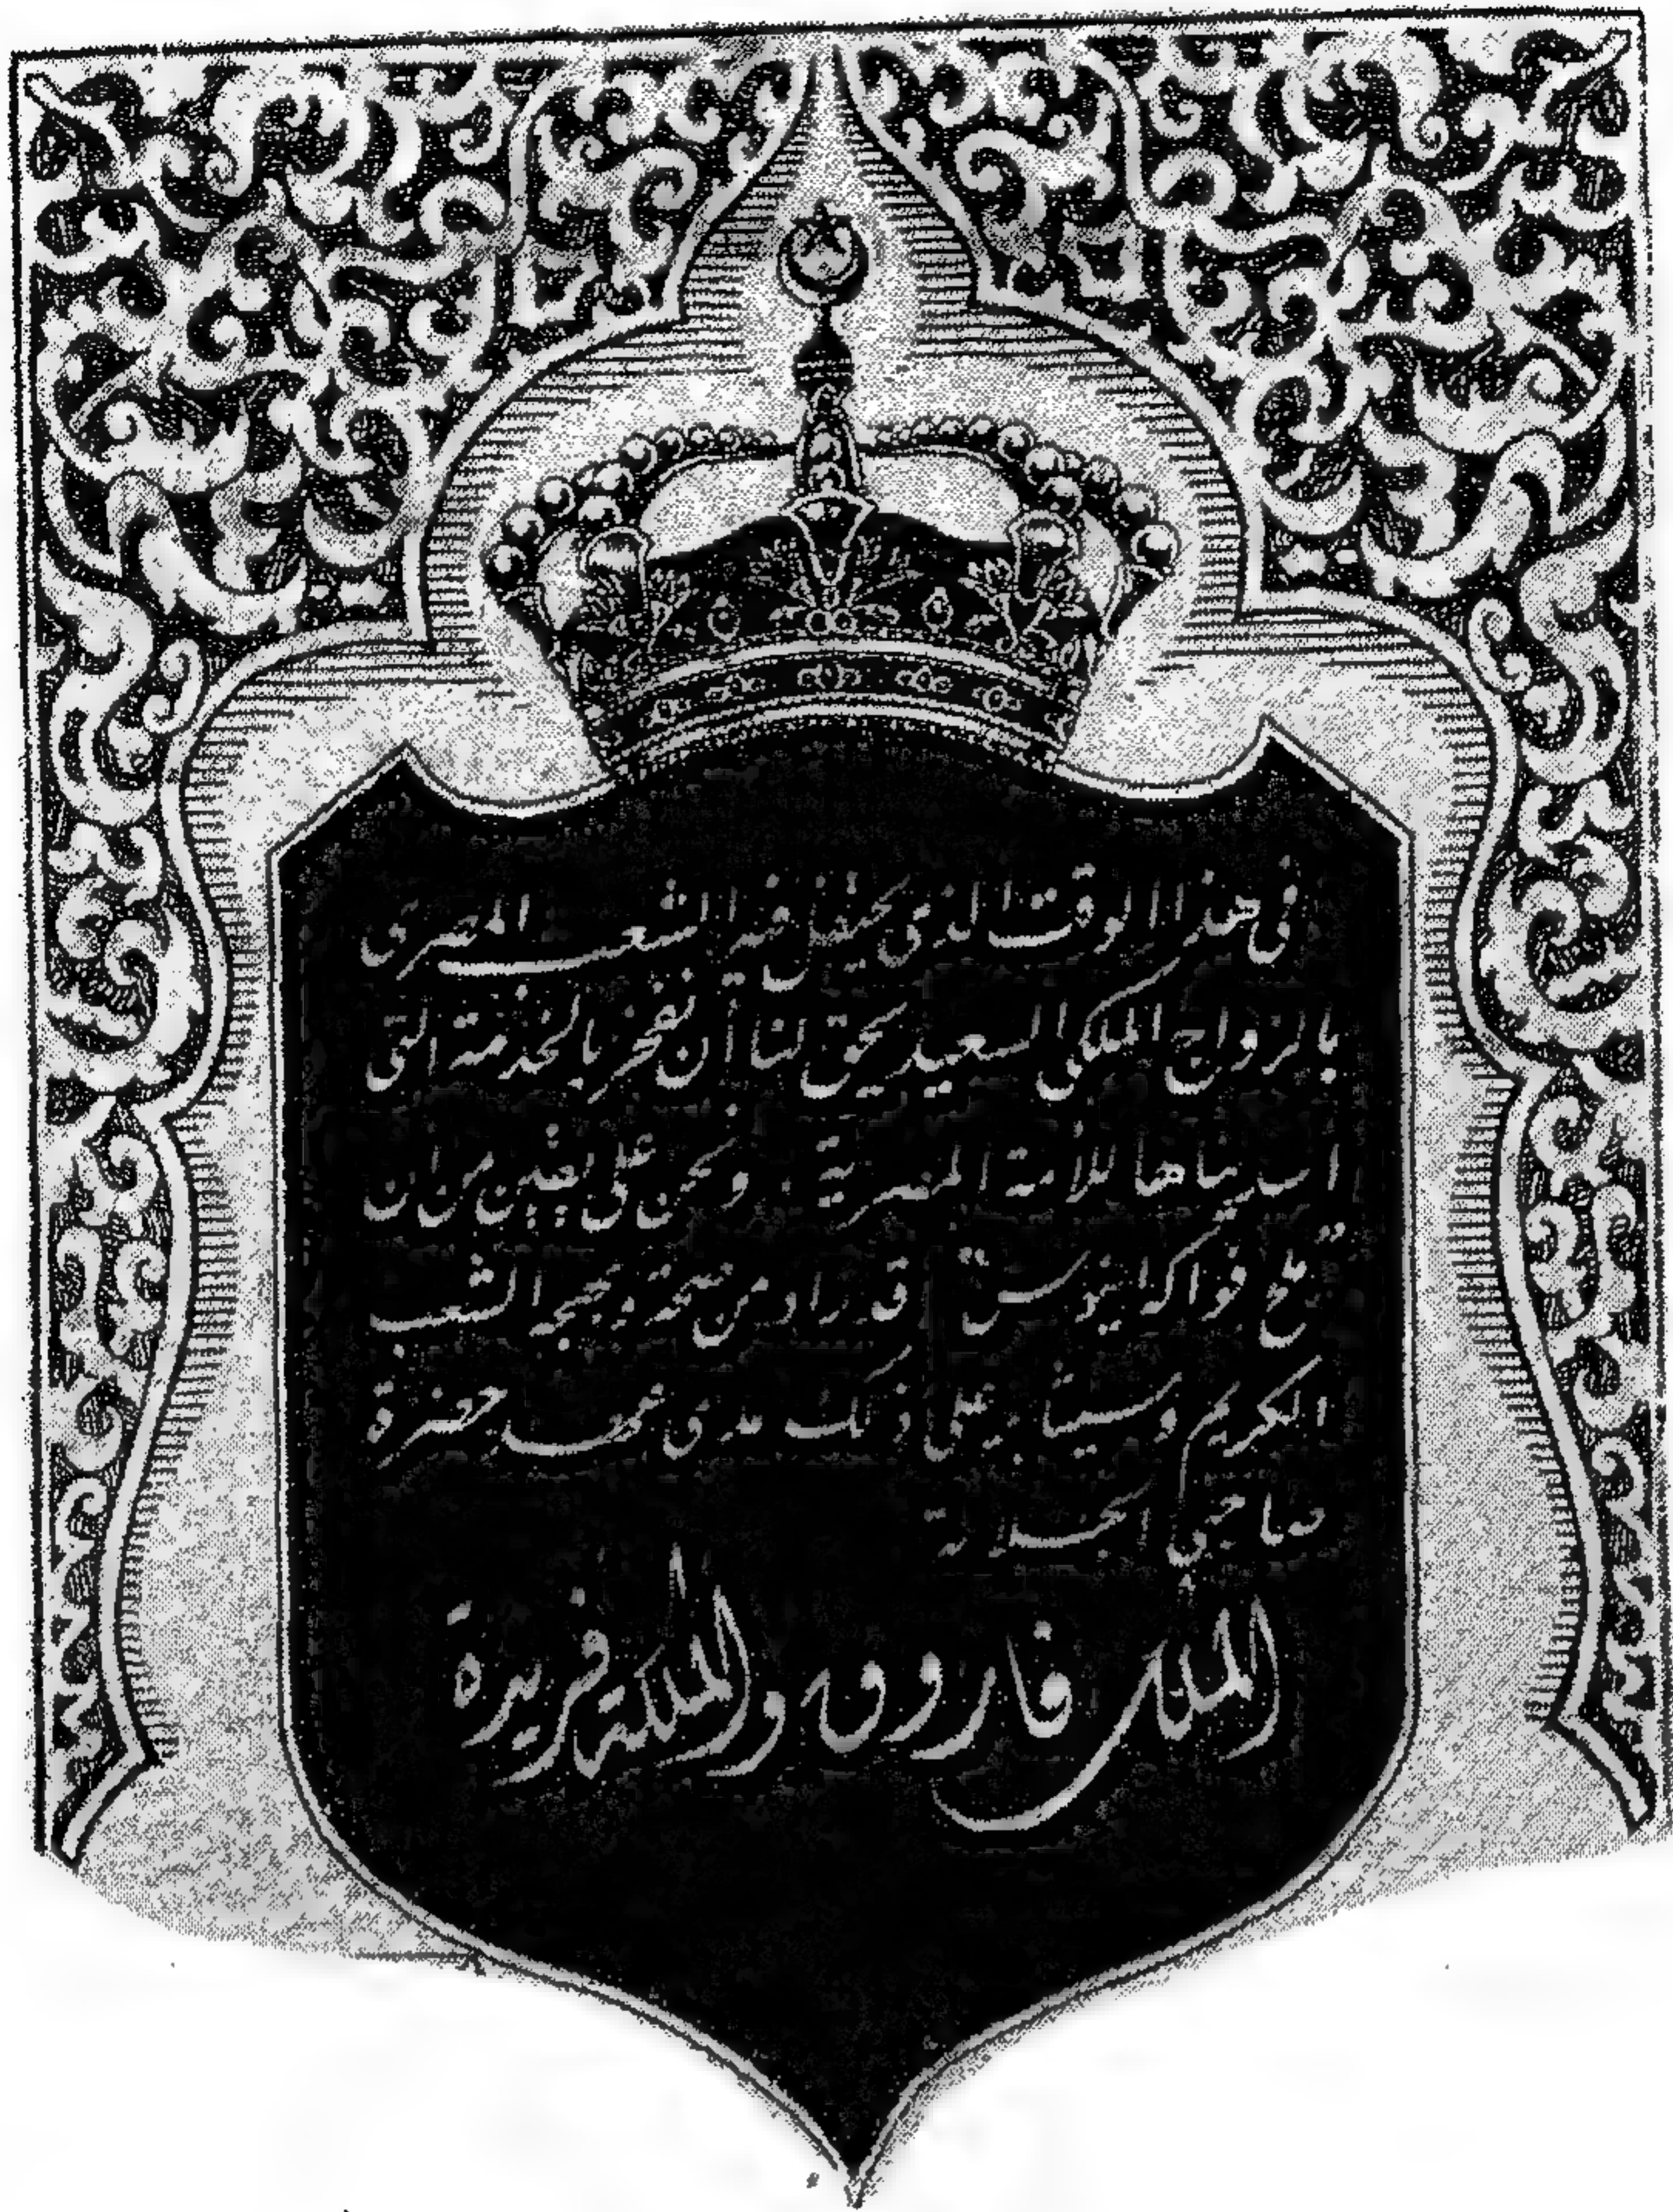 فى هذا الوقت الذى يحتفل فيه الشعب المصرى
بالزواج الملكى السعيد يحق لنا أن نفخر بالخدمة التى
اسديناها للأمة المصرية . ونحن على يقين من ان
ملح فواكه اينوس قد زاد من صحة وبهجة الشعب
الكريم وسيثابر على ذلك مدى عهد حضرة
صاحبى الجلالة
الملك فاروق والملكة فريدة